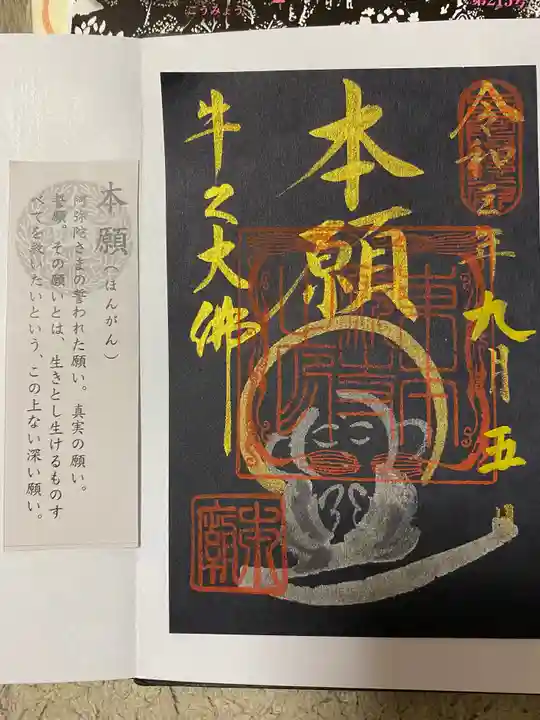 こうみょう
第215号
令和三年九月五
本願
牛久大佛
本願(ほんがん)
阿弥陀さまの誓われた願い。真実の願い。
誓願。その願いとは、生きとし生けるものす
べてを救いたいという、この上ない深い願い。